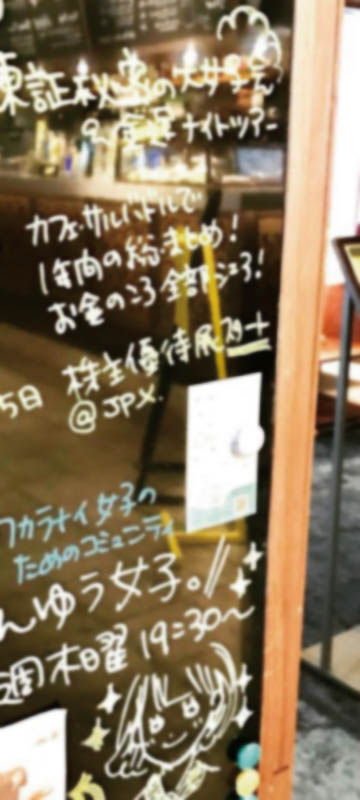 東証秘密の大女子会
&金運ナイトツアー
カフェ・サルバドルで
1年間の総まとめ!
お金のころ全部シェろ!
5日 株主優待展スタート
@JPX.
ワカラナイ女子の
ためのコミュニティ
んゆう女子。//
週木曜 19:30〜